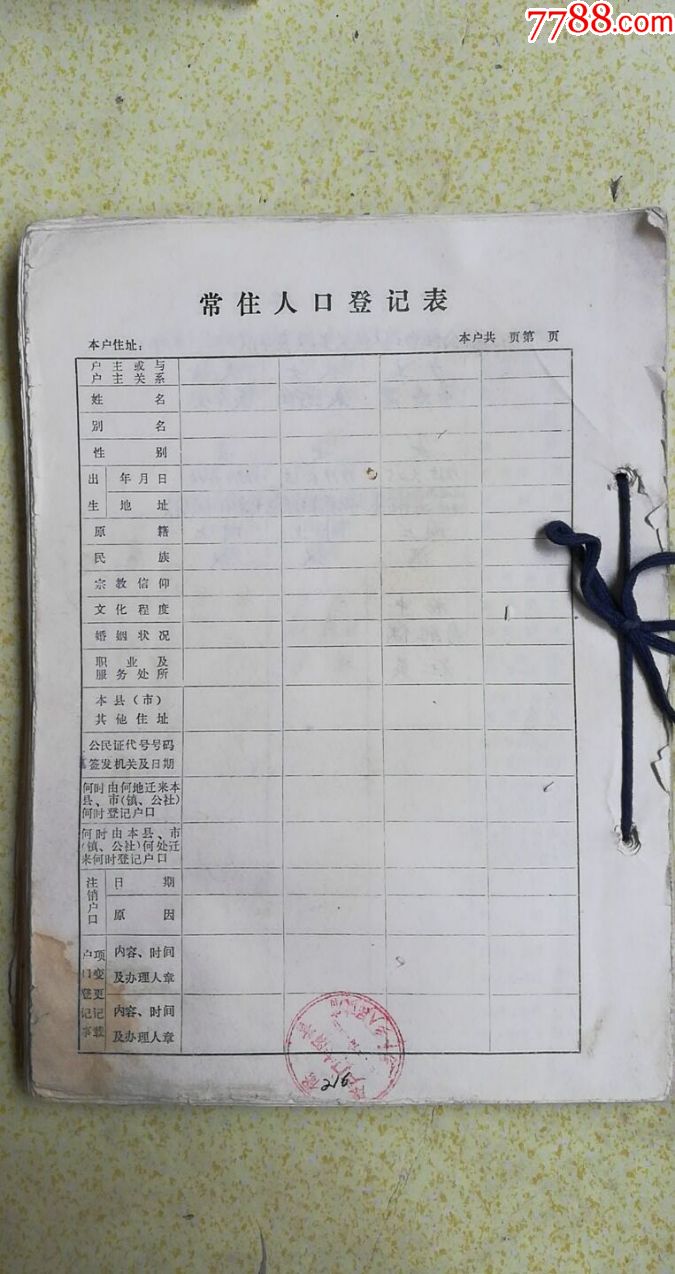 7788.com
常住人口登记表
本户住址： 本户共 页第 页
户主或与
户主关系
姓名
别名
性别
出生 年月日
地址
原籍
民族
宗教信仰
文化程度
婚姻状况
职业及
服务处所
本县（市）
其他住址
公民证代号号码
签发机关及日期
何时由何地迁来本
县、市（镇、公社）
何时登记户口
何时由本县、市
（镇、公社）何处迁
来何时登记户口
注销户口 日期
原因
户口登记事项变更记载 内容、时间
及办理人章
内容、时间
及办理人章
219